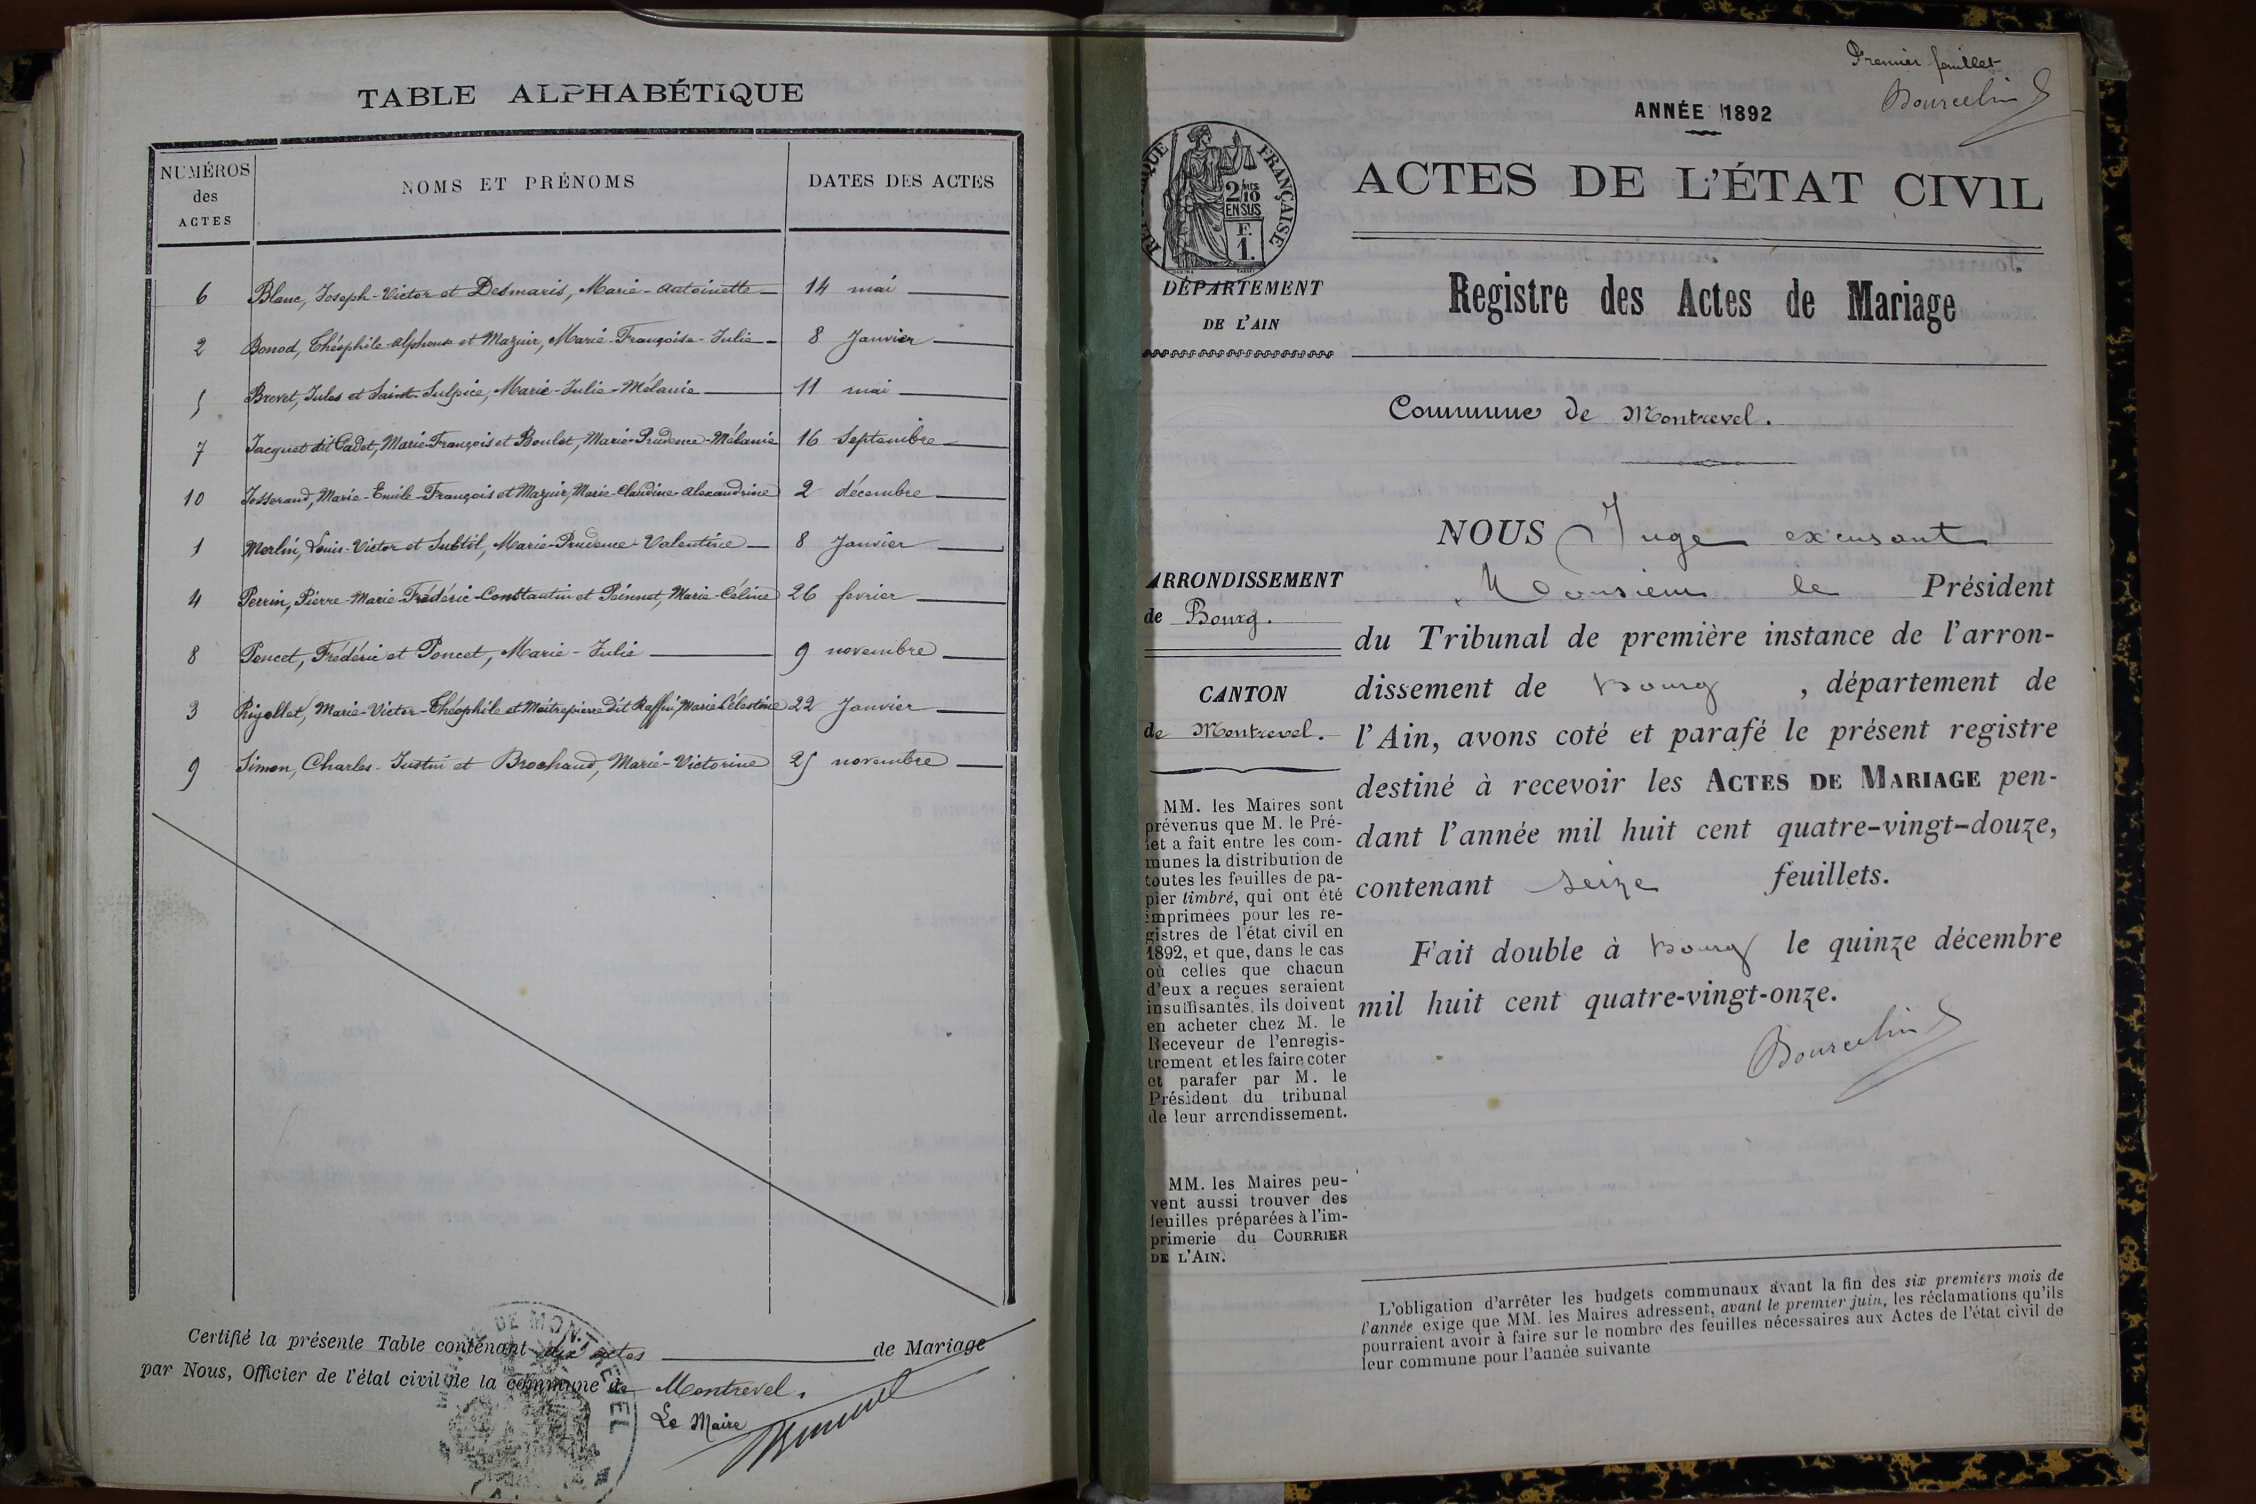 TABLE ALPHABÉTIQUE
NUMÉROS des ACTES NOMS ET PRÉNOMS DATES DES ACTES
6 Blanc, Joseph-Victor et Desmaris, Marie-Antoinette 14 mai
2 Bonod, Théophile-Alphonse et Mazuir, Marie-Françoise-Julie 8 Janvier
5 Brevet, Jules et Saint-Sulpice, Marie-Julie-Mélanie 11 mai
7 Jacquet dit Cadet, Marie-François et Boulet, Marie-Prudence-Mélanie 16 Septembre
10 Josserand, Marie-Emile-François et Mazuir, Marie-Claudine-Alexandrine 2 décembre
1 Merlin, Louis-Victor et Subtil, Marie-Prudence-Valentine 8 Janvier
4 Perrin, Pierre-Marie-Frédéric-Constantin et Poinnet, Marie-Céline 26 fevrier
8 Poncet, Frédéric et Poncet, Marie-Julie 9 novembre
3 Rigollet, Marie-Victor-Théophile et Maitrepierre dit Raffin, Marie Célestine 22 Janvier
9 Simon, Charles-Justin et Brochand, Marie-Victorine 25 novembre
Certifié la présente Table contenant dix actes de Mariage
par Nous, Officier de l'état civil de la commune de Montrevel.
Le Maire
DE MONTREVEL
Premier feuillet
Bourcelin
ANNÉE 1892
RÉPUBLIQUE FRANÇAISE
2/10
EN SUS
F.
1.
ACTES DE L'ÉTAT CIVIL
DÉPARTEMENT
DE L'AIN
Registre des Actes de Mariage
Commune de Montrevel.
ARRONDISSEMENT
de Bourg.
CANTON
de Montrevel.
MM. les Maires sont
prévenus que M. le Pré-
fet a fait entre les com-
munes la distribution de
toutes les feuilles de pa-
pier timbré, qui ont été
imprimées pour les re-
gistres de l'état civil en
1892, et que, dans le cas
où celles que chacun
d'eux a reçues seraient
insuffisantes, ils doivent
en acheter chez M. le
Receveur de l'enregis-
trement et les faire coter
et parafer par M. le
Président du tribunal
de leur arrondissement.
MM. les Maires peu-
vent aussi trouver des
feuilles préparées à l'im-
primerie du COURRIER
DE L'AIN.
NOUS Juge excusant
Monsieur le Président
du Tribunal de première instance de l'arron-
dissement de Bourg, département de
l'Ain, avons coté et parafé le présent registre
destiné à recevoir les ACTES DE MARIAGE pen-
dant l'année mil huit cent quatre-vingt-douze,
contenant seize feuillets.
Fait double à Bourg le quinze décembre
mil huit cent quatre-vingt-onze.
Bourcelin
L'obligation d'arrêter les budgets communaux avant la fin des six premiers mois de
l'année exige que MM. les Maires adressent, avant le premier juin, les réclamations qu'ils
pourraient avoir à faire sur le nombre des feuilles nécessaires aux Actes de l'état civil de
leur commune pour l'année suivante